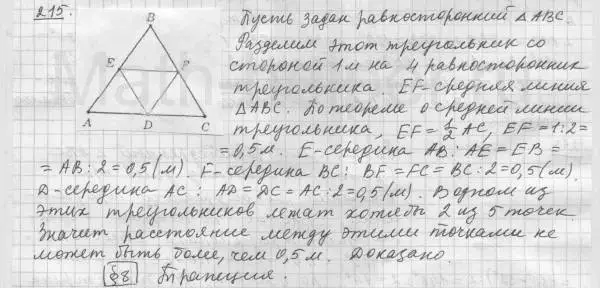 215. Пусть задан равносторонний △ ABC.
Разделим этот треугольник со
стороной 1 м на 4 равносторонник
треугольника. EF - средняя линия
△ABC. По теореме о средней линии
треугольника, EF = 1/2 AC, EF = 1:2 =
= 0,5 м. E - середина AB: AE = EB =
= AB : 2 = 0,5 (м). F - середина BC: BF = FC = BC : 2 = 0,5 (м).
D - середина AC: AD = DC = AC : 2 = 0,5 (м). В одном из
этих треугольников лежат хотябы 2 из 5 точек.
Значит расстояние между этими точками не
может быть более, чем 0,5 м. Доказано.
§8. Трапеция.
B
E F
A D C